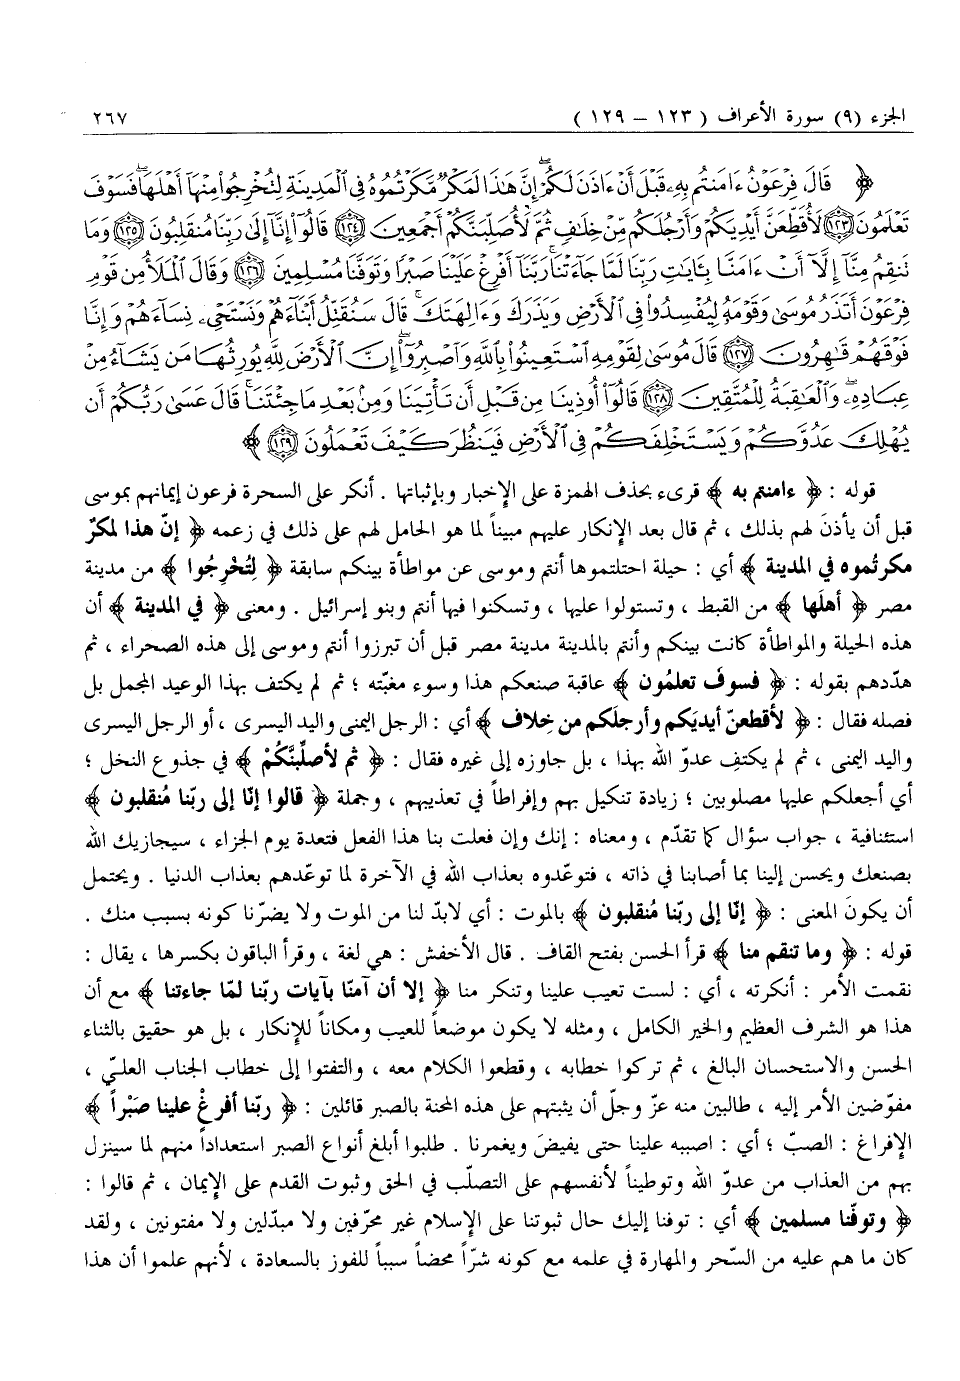 الجزء (٩) سورة الأعراف ( ١٢٣ – ١٢٩ ) ٢٦٧
﴿ قَالَ فِرْعَوْنُ ءَامَنتُم بِهِۦ قَبْلَ أَنْ ءَاذَنَ لَكُمْۖ إِنَّ هَٰذَا لَمَكْرٌ مَّكَرْتُمُوهُ فِى ٱلْمَدِينَةِ لِتُخْرِجُوا۟ مِنْهَآ أَهْلَهَاۖ فَسَوْفَ
تَعْلَمُونَ ١٢٣ لَأُقَطِّعَنَّ أَيْدِيَكُمْ وَأَرْجُلَكُم مِّنْ خِلَٰفٍ ثُمَّ لَأُصَلِّبَنَّكُمْ أَجْمَعِينَ ١٢٤ قَالُوٓا۟ إِنَّآ إِلَىٰ رَبِّنَا مُنقَلِبُونَ ١٢٥ وَمَا
تَنقِمُ مِنَّآ إِلَّآ أَنْ ءَامَنَّا بِـَٔايَٰتِ رَبِّنَا لَمَّا جَآءَتْنَاۚ رَبَّنَآ أَفْرِغْ عَلَيْنَا صَبْرًا وَتَوَفَّنَا مُسْلِمِينَ ١٢٦ وَقَالَ ٱلْمَلَأُ مِن قَوْمِ
فِرْعَوْنَ أَتَذَرُ مُوسَىٰ وَقَوْمَهُۥ لِيُفْسِدُوا۟ فِى ٱلْأَرْضِ وَيَذَرَكَ وَءَالِهَتَكَۚ قَالَ سَنُقَتِّلُ أَبْنَآءَهُمْ وَنَسْتَحْىِۦ نِسَآءَهُمْ وَإِنَّا
فَوْقَهُمْ قَٰهِرُونَ ١٢٧ قَالَ مُوسَىٰ لِقَوْمِهِ ٱسْتَعِينُوا۟ بِٱللَّهِ وَٱصْبِرُوٓا۟ۖ إِنَّ ٱلْأَرْضَ لِلَّهِ يُورِثُهَا مَن يَشَآءُ مِنْ
عِبَادِهِۦۖ وَٱلْعَٰقِبَةُ لِلْمُتَّقِينَ ١٢٨ قَالُوٓا۟ أُوذِينَا مِن قَبْلِ أَن تَأْتِيَنَا وَمِنۢ بَعْدِ مَا جِئْتَنَاۚ قَالَ عَسَىٰ رَبُّكُمْ أَن
يُهْلِكَ عَدُوَّكُمْ وَيَسْتَخْلِفَكُمْ فِى ٱلْأَرْضِ فَيَنظُرَ كَيْفَ تَعْمَلُونَ ١٢٩ ﴾
قوله : ﴿ ءامنتم به ﴾ قرىء بحذف الهمزة على الإخبار وبإثباتها . أنكر على السحرة فرعون إيمانهم بموسى
قبل أن يأذنَ لهم بذلك ، ثم قال بعد الإنكار عليهم مبيناً لما هو الحامل لهم على ذلك في زعمه ﴿ إنّ هذا لمكرٌ
مكرتُموه في المدينة ﴾ أي : حيلة احتلتموها أنتم وموسى عن مواطأة بينكم سابقة ﴿ لِتُخْرِجُوا ﴾ من مدينة
مصر ﴿ أهلَها ﴾ من القبط ، وتستولوا عليها ، وتسكنوا فيها أنتم وبنو إسرائيل . ومعنى ﴿ في المدينة ﴾ أن
هذه الحيلة والمواطأة كانت بينكم وأنتم بالمدينة مدينة مصر قبل أن تبرزوا أنتم وموسى إلى هذه الصحراء ، ثم
هدّدهم بقوله : ﴿ فسوفَ تعلمُون ﴾ عاقبة صنعكم هذا وسوء مغبّته ؛ ثم لم يكتف بهذا الوعيد المجمل بل
فصله فقال : ﴿ لأقطعنّ أيديَكم وأرجلَكم من خِلاف ﴾ أي : الرجل اليمنى واليد اليسرى ، أو الرجل اليسرى
واليد اليمنى ، ثم لم يكتفِ عدوّ الله بهذا ، بل جاوزه إلى غيره فقال : ﴿ ثم لأصلِّبنَّكُمْ ﴾ في جذوع النخل ؛
أي أجعلكم عليها مصلوبين ؛ زيادة تنكيل بهم وإفراطاً في تعذيبهم ، وجملة ﴿ قالوا إنّا إلى ربّنا منقلبون ﴾
استئنافية ، جواب سؤال كما تقدّم ، ومعناه : إنك وإن فعلت بنا هذا الفعل فتعدة يوم الجزاء ، سيجازيك الله
بصنعك ويحسن إلينا بما أصابنا في ذاته ، فتوعّدوه بعذاب الله في الآخرة لما توعّدهم بعذاب الدنيا . ويحتمل
أن يكونَ المعنى : ﴿ إنّا إلى ربّنا مُنقلبون ﴾ بالموت : أي لابدّ لنا من الموت ولا يضرّنا كونه بسبب منك .
قوله : ﴿ وما تنقم منا ﴾ قرأ الحسن بفتح القاف . قال الأخفش : هي لغة ، وقرأ الباقون بكسرها ، يقال :
نقمت الأمر : أنكرته ، أي : لست تعيب علينا وتنكر منا ﴿ إلا أن آمنّا بآيات ربّنا لمّا جاءتنا ﴾ مع أن
هذا هو الشرف العظيم والخير الكامل ، ومثله لا يكون موضعاً للعيب ومكاناً للإنكار ، بل هو حقيق بالثناء
الحسن والاستحسان البالغ ، ثم تركوا خطابه ، وقطعوا الكلام معه ، والتفتوا إلى خطاب الجناب العليّ ،
مفوّضين الأمر إليه ، طالبين منه عزّ وجلّ أن يثبتهم على هذه المحنة بالصبر قائلين : ﴿ ربّنا أفرغْ علينا صَبْراً ﴾
الإفراغ : الصبّ ؛ أي : اصببه علينا حتى يفيضَ ويغمرنا . طلبوا أبلغ أنواع الصبر استعداداً منهم لما سينزل
بهم من العذاب من عدوّ الله وتوطيناً لأنفسهم على التصلّب في الحق وثبوت القدم على الإيمان ، ثم قالوا :
﴿ وتوفّنا مسلمين ﴾ أي : توفنا إليك حال ثبوتنا على الإسلام غير محرّفين ولا مبدّلين ولا مفتونين ، ولقد
كان ما هم عليه من السّحر والمهارة في علمه مع كونه شرّاً محضاً سبباً للفوز بالسعادة ، لأنهم علموا أن هذا